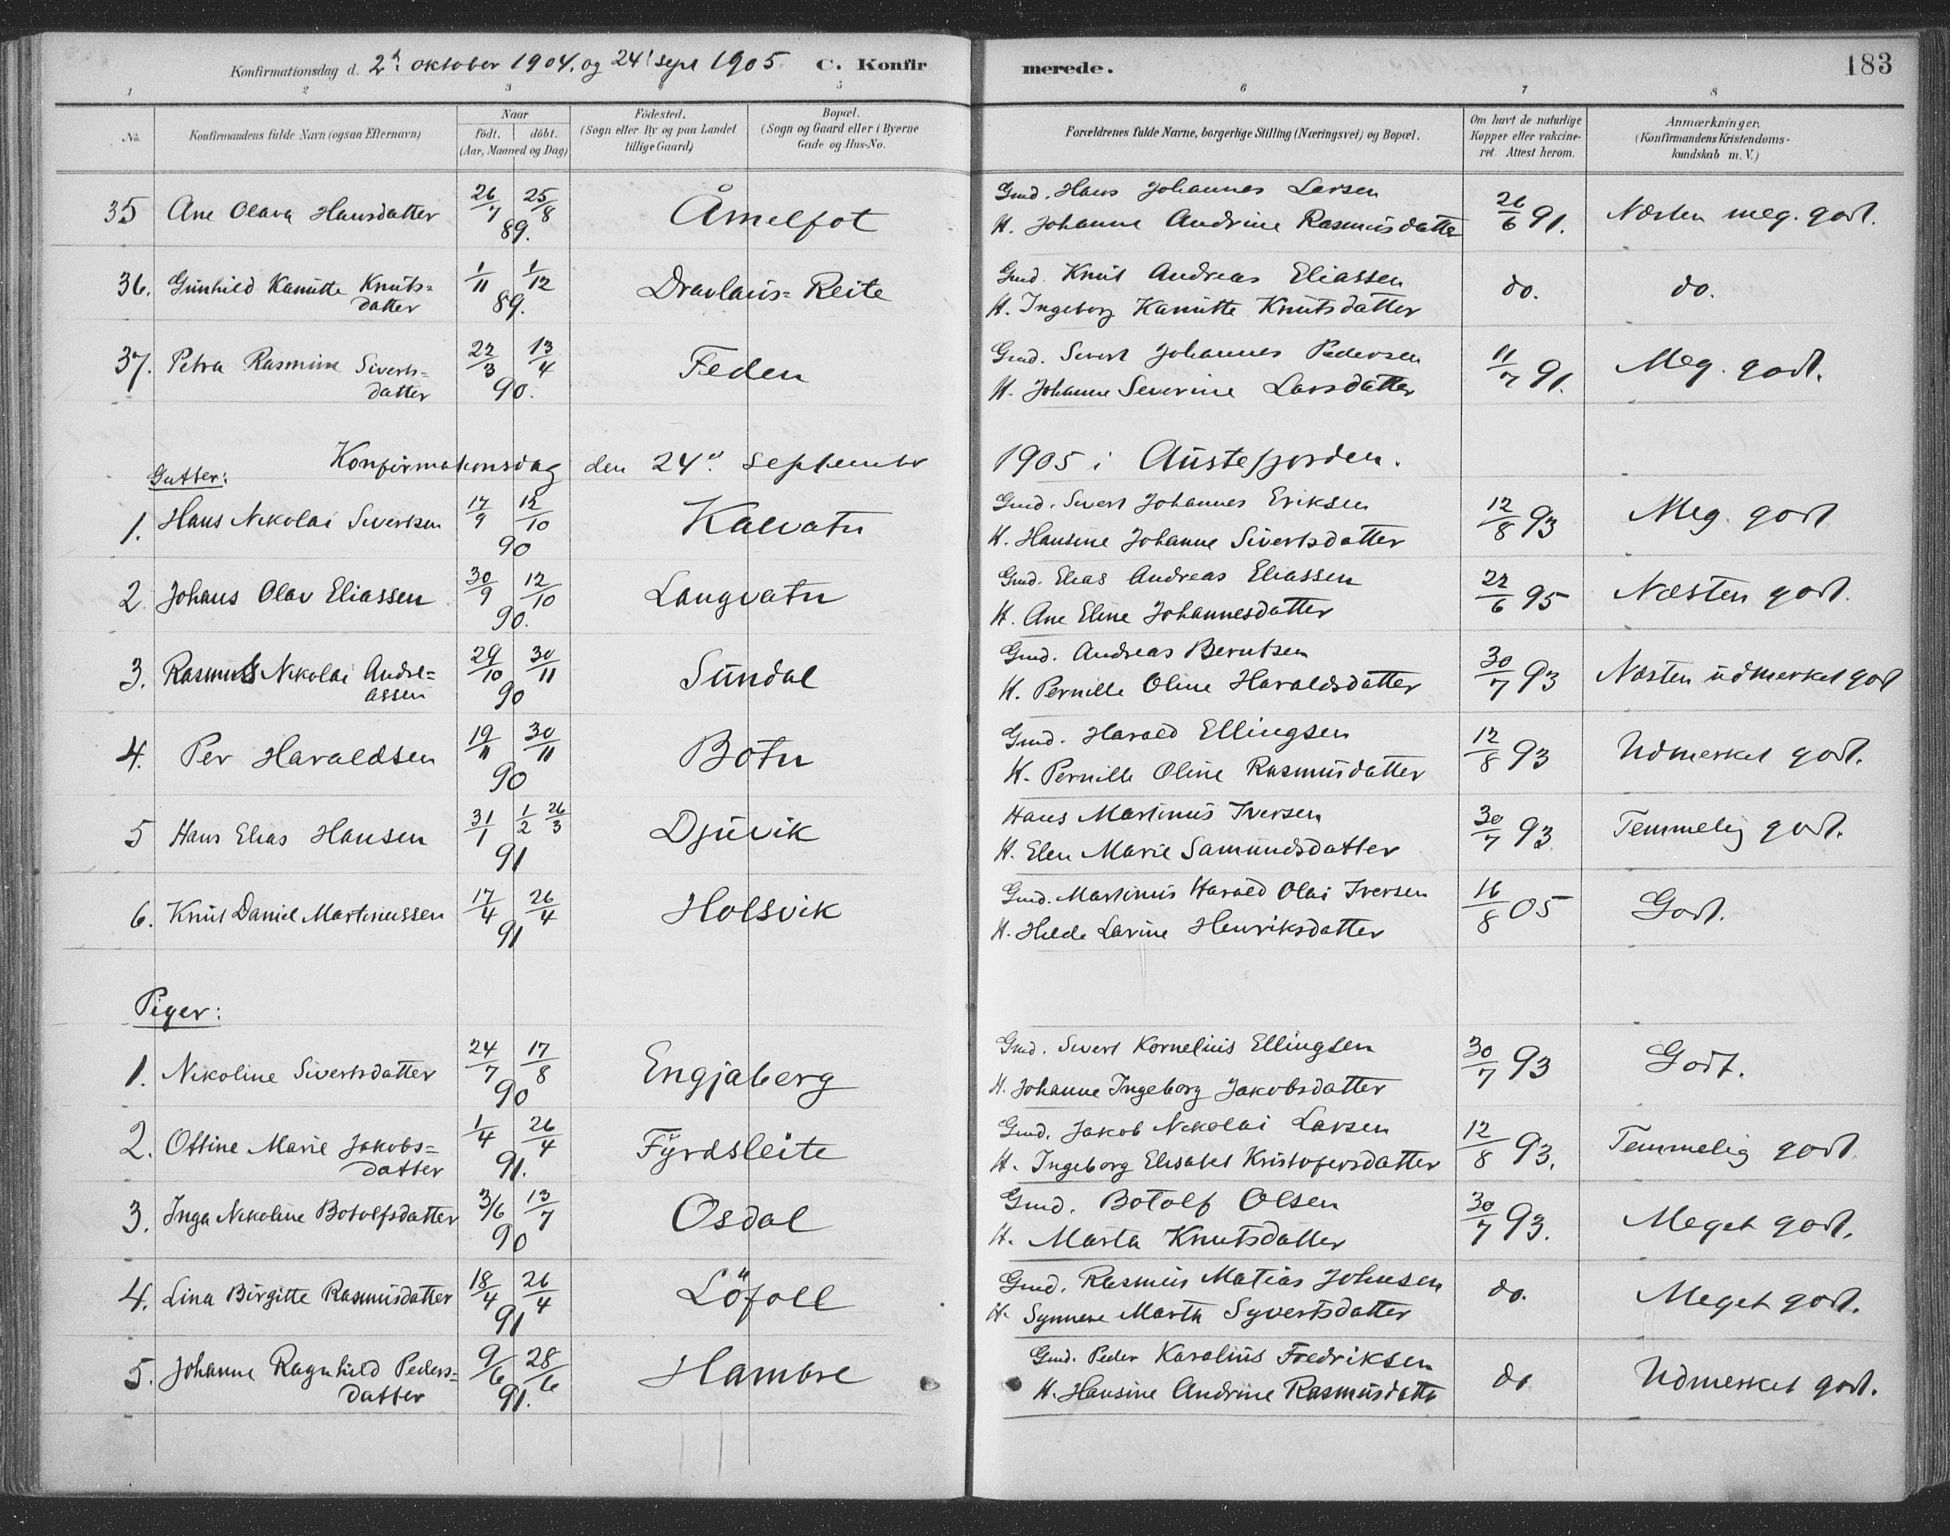 Konfirmationsdag d. 2de oktober 1904. og 24' sept 1905. C. Konfirmerede. 183
1 2 3 4 5 6 7 8
No. Konfirmandens fulde Navn (ogsaa Efternavn) Naar født. døbt. (Aar, Maaned og Dag) Födested. (Sogn eller By og paa Landet tillige Gaard) Bopæl. (Sogn og Gaard eller i Byerne Gade og Hus-No. Forældrenes fulde Navne, borgerlige Stilling (Næringsvei) og Bopæl. Om havt de naturlige Kopper eller vakcineret. Attest herom. Anmærkninger. (Konfirmandens Kristendomskundskab m. V.)
35 Ane Olava Hansdatter 26/7 25/8 89. Åmelfot Gmd. Hans Johannes Larsen 26/6 91. Næsten meg. godt.
H. Johanne Andrine Rasmusdatter
36. Gunhild Kanutte Knuts= 1/11 1/12 89. Dravlaus=Reite Gmd. Knut Andreas Eliassen do. do.
datter H. Ingeborg Kanutte Knutsdatter
37. Petra Rasmine Siverts= 22/3 13/4 90. Feden Gmd. Sivert Johannes Pedersen 11/7 91. Meg. godt.
datter H. Johanne Severine Larsdatter
Konfirmationsdag den 24de september 1905 i Austefjorden.
Gutter:
1. Hans Nikolai Sivertsen 17/9 12/10 90 Kalvatn Gmd. Sivert Johannes Eriksen 12/8 93 Meg. godt
H. Hansine Johanne Sivertsdatter
2. Johans Olav Eliassen 30/9 12/10 90. Langvatn Gmd. Elias Andreas Eliassen 22/6 95 Næsten godt.
H. Ane Eline Johannesdatter
3. Rasmus Nikolai Andre= 29/10 30/11 90 Sundal Gmd. Andreas Berntsen 30/7 93 Næsten udmerket godt
assen H. Pernille Oline Haraldsdatter
4. Per Haraldsen 19/11 30/11 90 Botn Gmd. Harald Ellingsen 12/8 93 Udmerket godt.
H. Pernille Oline Rasmusdatter
5 Hans Elias Hansen 31/1 1/2 26/3 91 Djuvik Hans Martinus Iversen 30/7 93 Temmelig godt.
H. Elen Marie Samundsdatter
6. Knut Daniel Martinussen 17/4 26/4 91 Holsvik Gmd. Martinus Harald Olai Iversen 16/8 05 Godt.
H. Hilde Larine Henriksdatter
Piger:
1. Nikoline Sivertsdatter 24/7 17/8 90 Engjaberg Gmd. Sivert Kornelius Ellingsen 30/7 93 Godt.
H. Johanne Ingeborg Jakobsdatter
2. Ottine Marie Jakobs= 1/4 26/4 91. Fyrdsleite Gmd. Jakob Nikolai Larsen 12/8 93. Temmelig godt
datter H. Ingeborg Elisabet Kristofersdatter
3. Inga Nikoline Botolfsdatter 3/6 13/7 90 Osdal Gmd. Botolf Olsen 30/7 93. Meget godt.
H. Marta Knutsdatter
4. Lina Birgitte Rasmusdatter 18/4 26/4 91 Löfoll Gmd. Rasmus Matias Johnsen do. Meget godt.
H. Synneve Marta Syvertsdatter
5. Johanne Ragnhild Peders= 9/6 28/6 91. Hambre Gmd. Peder Karolius Fredriksen do Udmerket godt.
datter H. Hansine Andrine Rasmusdatter